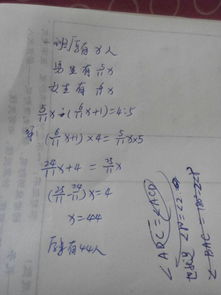 现后有x人
男生有5/11x
女生有6/11x
5/11x÷(6/11x+1)=4:5
(6/11x+1)×4=5/11x×5
24/11x+4=25/11x
(25/11-24/11)x=4
x=44
后有44人
∠ADC=∠ACD